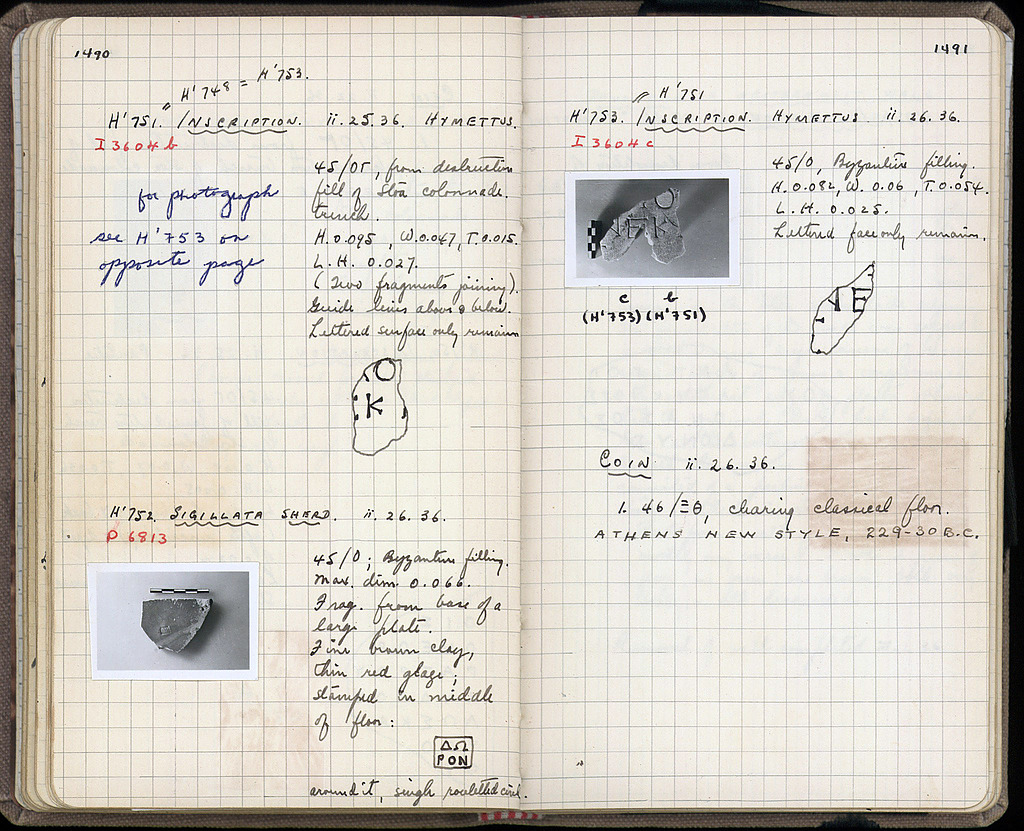 1490
" H'748 = H'753.
H'751. INSCRIPTION. ii.25.36. HYMETTUS.
I 3604 b
for photograph
see H'753 on
opposite page
45/ΟΓ, from destruction
fill of Stoa colonnade
trench.
H. 0.095, W. 0.047, T. 0.015.
L.H. 0.027.
(Two fragments joining).
Guide lines above & below.
Lettered surface only remains
Ο
Κ
H'752. SIGILLATA SHERD. ii.26.36.
P 6813
45/Ο; Byzantine filling.
Max. dim. 0.066.
Frag. from base of a
large plate.
Fine brown clay,
thin red glaze;
stamped in middle
of floor:
ΔΩ
ΡΟΝ
around it, single rouletted circl.
1491
" H'751
H'753. INSCRIPTION. HYMETTUS ii.26.36.
I 3604 c
45/Ο, Byzantine filling.
H. 0.082, W. 0.06, T. 0.054.
L.H. 0.025.
Lettered face only remains.
c b
(H'753) (H'751)
Ε
COIN ii.26.36.
1. 46/ΞΘ, clearing classical floor.
ATHENS NEW STYLE, 229-30 B.C.